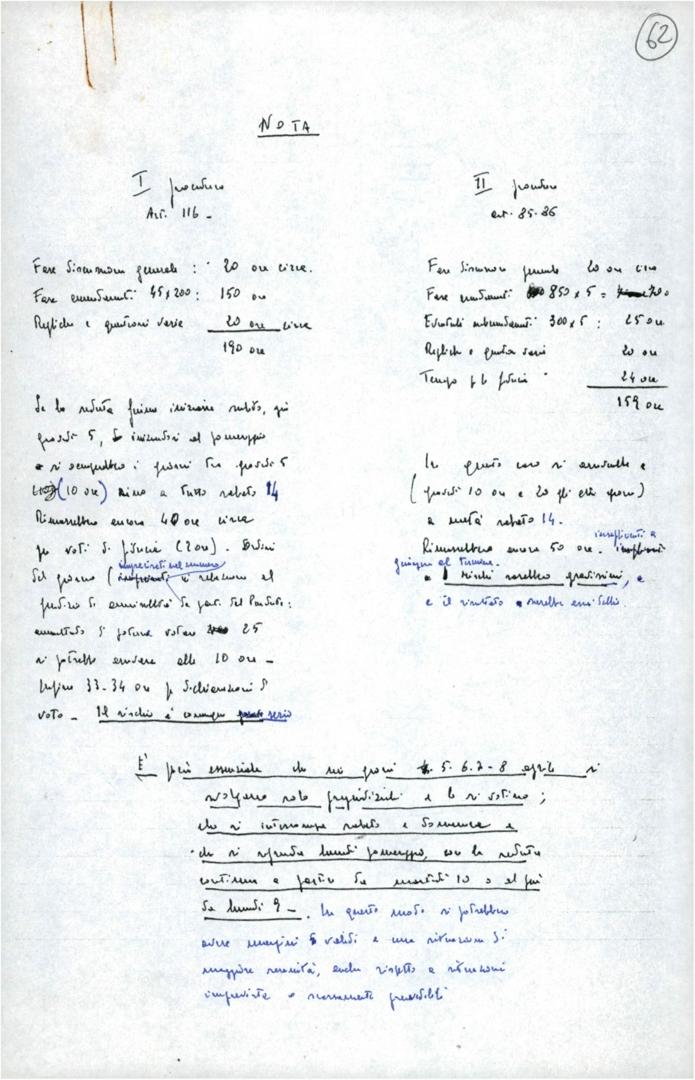 62
NOTA
I procedura
Art. 116 -
Fase discussione generale : 20 ore circa.
Fase emendamenti 45x200 : 150 ore
Repliche e questioni varie 20 ore circa
190 ore
Se la seduta fiume iniziasse subito, già
giovedì 5, iniziandosi al pomeriggio
si avrebbero i giorni tra giovedì 5
(10 ore) sino a tutto sabato 14
Rimarrebbero ancora 40 ore circa
per voti di fiducia (2 ore). Ordini
del giorno (imprecisati nel numero in relazione al
giudizio di ammissibilità da parte del Presidente:
ammettendo di poterne votare 25
si potrebbe arrivare alle 10 ore -
Infine 33-34 ore p. dichiarazioni di
voto - Il rischio è comunque serio
II procedura
art. 85-86
Fase discussione generale 20 ore circa
Fase emendamenti 850 x 5 = 70 o
Eventuali subemendamenti 300 x 5 : 25 ore
Repliche e questioni varie 20 ore
Tempo p. la fiducia 24 ore
159 ore
In questo caso si arriverebbe
(giovedì 10 ore e 20 gli altri giorni)
a metà sabato 14.
Rimarrebbero ancora 50 ore. insufficienti a
giungere al termine.
I rischi sarebbero gravissimi, e
e il risultato sarebbe
È più essenziale che nei giorni 5. 6. 7 - 8 aprile si
svolgano solo pregiudiziali e le si votino ;
che si interrompa sabato e domenica e
che si riprenda lunedì pomeriggio, con la seduta
continua a partire da martedì 10 o al più
da lunedì 9 - In questo modo si potrebbero
avere margini validi e una situazione di
maggiore serenità, anche rispetto a situazioni
impreviste o scarsamente prevedibili